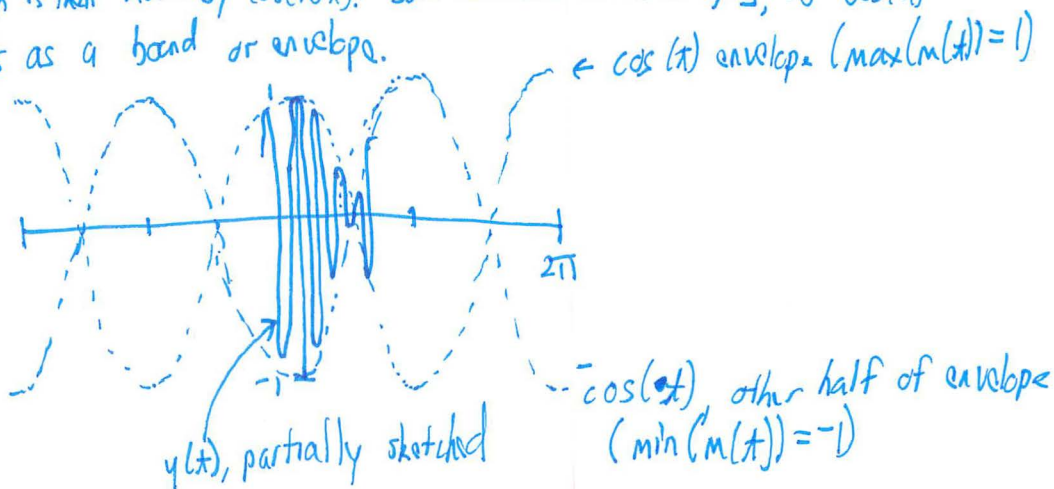 as a band or envelope.
← cos(t) envelope (max(m(t))=1)
1
1
2π
-1
-cos(t), other half of envelope
(min(m(t))=-1)
y(t), partially sketched